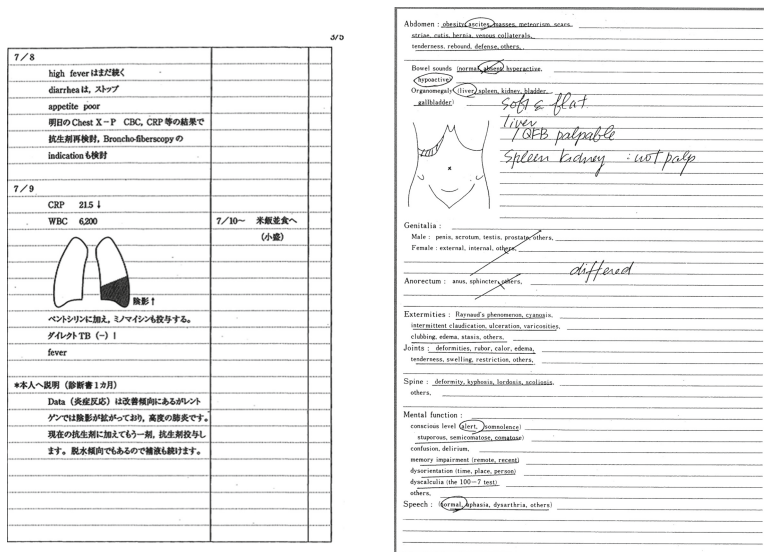 3/5
7/8
high fever はまだ続く
diarrhea は，ストップ
appetite poor
明日の Chest X-P CBC, CRP 等の結果で
抗生剤再検討，Broncho-fiberscopy の
indication も検討
7/9
CRP 21.5 ↓
WBC 6,200
7/10～ 米飯並食へ
(小盛)
陰影↑
ペントシリンに加え，ミノマイシンも投与する。
ダイレクト TB (－) !
fever
*本人へ説明（診断書1カ月）
Data（炎症反応）は改善傾向にあるがレント
ゲンでは陰影が拡がっており，高度の肺炎です。
現在の抗生剤に加えてもう一剤，抗生剤投与し
ます。脱水傾向でもあるので補液も続けます。
Abdomen : obesity, ascites, masses, meteorism, scars,
striae, cutis, hernia, venous collaterals,
tenderness, rebound, defense, others,
Bowel sounds (normal, absent, hyperactive,
hypoactive)
Organomegaly (liver, spleen, kidney, bladder,
gallbladder)
soft & flat
liver
1QFB palpable
spleen kidney : not palp
Genitalia :
Male : penis, scrotum, testis, prostate, others,
Female : external, internal, others,
differed
Anorectum : anus, sphincter, others,
Extermities : Raynaud's phenomenon, cyanosis,
intermittent claudication, ulceration, varicosities,
clubbing, edema, stasis, others,
Joints : deformities, rubor, calor, edema,
tenderness, swelling, restriction, others,
Spine : deformity, kyphosis, lordosis, scoliosis,
others,
Mental function :
conscious level (alert, somnolence)
stuporous, semicomatose, comatose)
confusion, delirium,
memory impairment (remote, recent)
dysorientation (time, place, person)
dyscalculia (the 100-7 test)
others,
Speech : (normal, aphasia, dysarthria, others)